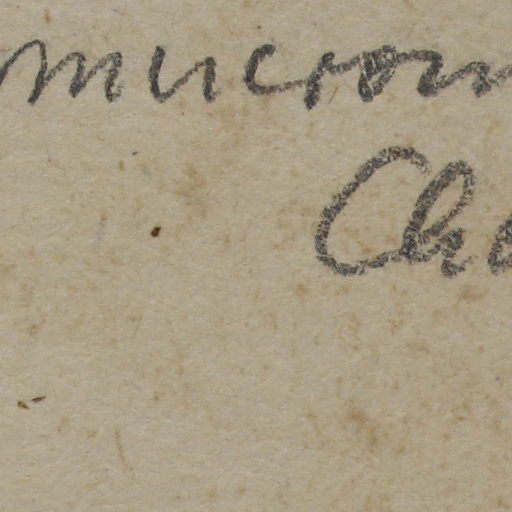 mucron
Che